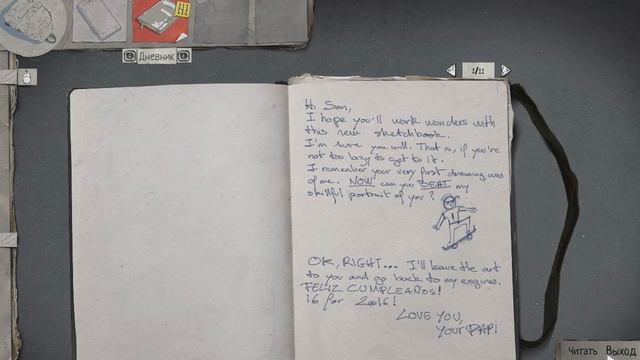 Дневник
1/11
Hi Son,
I hope you'll work wonders with
this new sketchbook.
I'm sure you will. That is, if you're
not too lazy to get to it.
I remember your very first drawing was
of me. NOW can you BEAT my
skillful portrait of you?
OK, RIGHT... I'll leave the art
to you and go back to my engines.
FELIZ CUMPLEAÑOS!
16 for 2016!
LOVE YOU,
your PAPI
Читать Выход